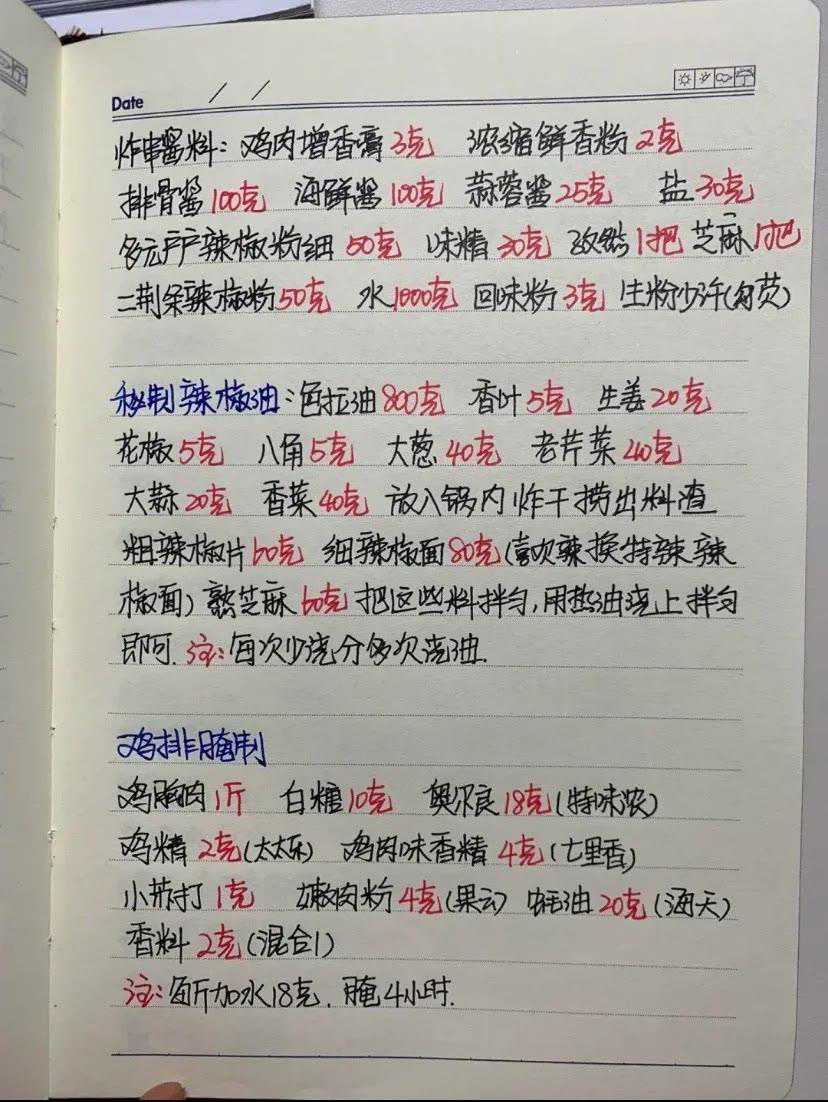 Date / /
炸串酱料：鸡肉增香膏3克 浓缩鲜香粉2克
排骨酱100克 海鲜酱100克 蒜蓉酱25克 盐30克
辣椒粉细50克 味精30克 孜然1把 芝麻1把
二荆条辣椒粉50克 水1000克 回味粉3克 生粉少许(勾芡)
秘制辣椒油：色拉油800克 香叶5克 生姜20克
花椒5克 八角5克 大葱40克 老芹菜40克
大蒜20克 香菜40克 放入锅内炸干捞出料渣
粗辣椒片60克 细辣椒面80克(喜欢辣换特辣辣
椒面)熟芝麻60克 把这些料拌匀,用热油浇上拌匀
即可. 注：每次少浇分多次浇油.
鸡排腌制
鸡胸肉1斤 白糖10克 奥尔良18克(特味浓)
鸡精2克(太太乐) 鸡肉味香精4克(七里香)
小苏打1克 嫩肉粉4克 蚝油20克(海天)
香料2克(混合1)
注：每斤加水18克. 腌4小时.